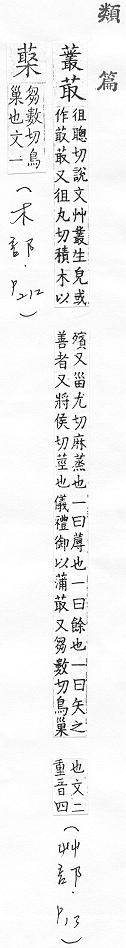 類篇
叢菆徂聰切說文艸叢生皃或
作菆菆又徂丸切積木以
殯又甾尤切麻蒸也一曰蓐也一曰餘也一曰矢之
善者又將侯切莖也儀禮御以蒲菆又芻數切鳥巢
也文二
重音四
(艸部.P13)
芻數切鳥
巢也文一
(木部.P212)